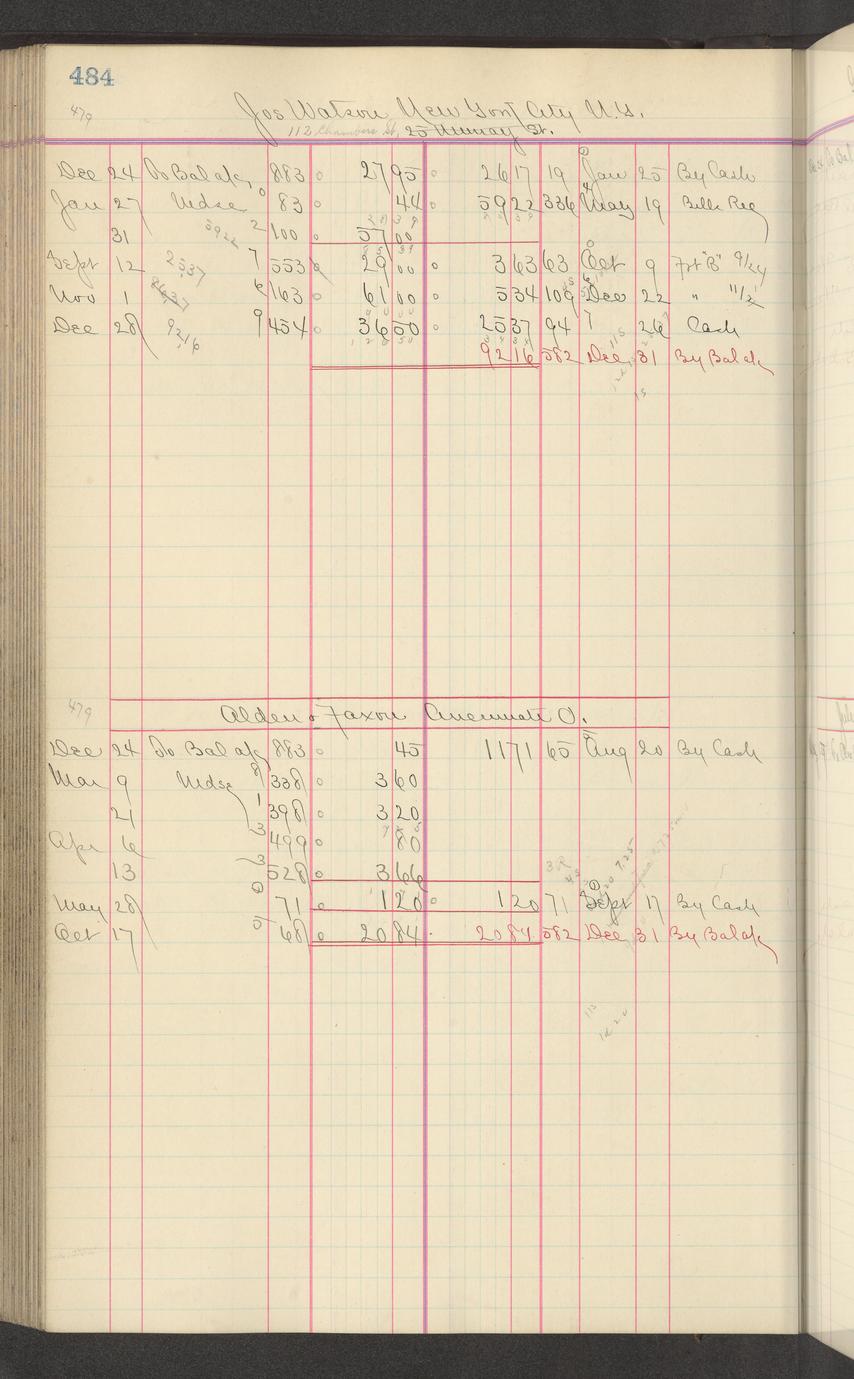 484
479
Jos Watson New York City U.S.
112 Chambers St, 25 Murray St.
Dec 24 To Bal a/c 883 27 95 26 17 19 Jan 25 By Cash
Jan 27 Mdse 0 83 44 59 22 336 May 19 Bills Rec
31 5922 2 100 57 00
Sept 12 2537 7 553 29 00 3 63 63 Oct 9 Frt "B" 9/24
Nov 1 8637 6 163 61 00 5 34 109 Dec 22 " 11/2
Dec 28 9216 9 454 36 50 25 37 94 7 26 Cash
92 16 582 Dec 31 By Bal a/c
479
Alden & Faxon Cincinnati O.
Dec 24 To Bal a/c 883 45 11 71 65 Aug 20 By Cash
Mar 9 Mdse 8 338 3 60
21 1 398 3 20
Apr 6 3 499 80
13 3 528 3 66
May 28 0 71 1 20 1 20 71 Sept 17 By Cash
Oct 17 5 68 20 84 20 84 582 Dec 31 By Bal a/c